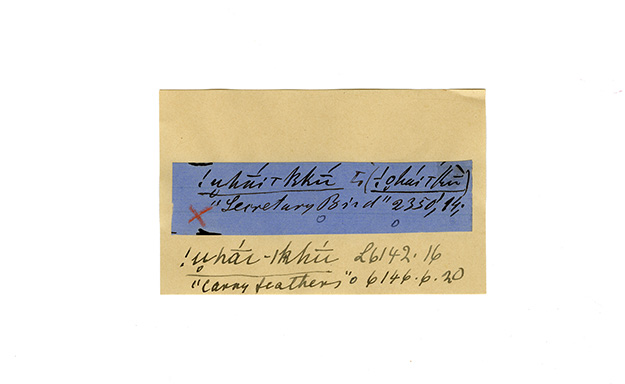 !u̥hái-kkū́ Ꞁ (!o̥háí-kū́)
"Secretary Bird" 2350, 14;
!u̥hái-!khū L6142.16
"carry feathers" 6146.6.20